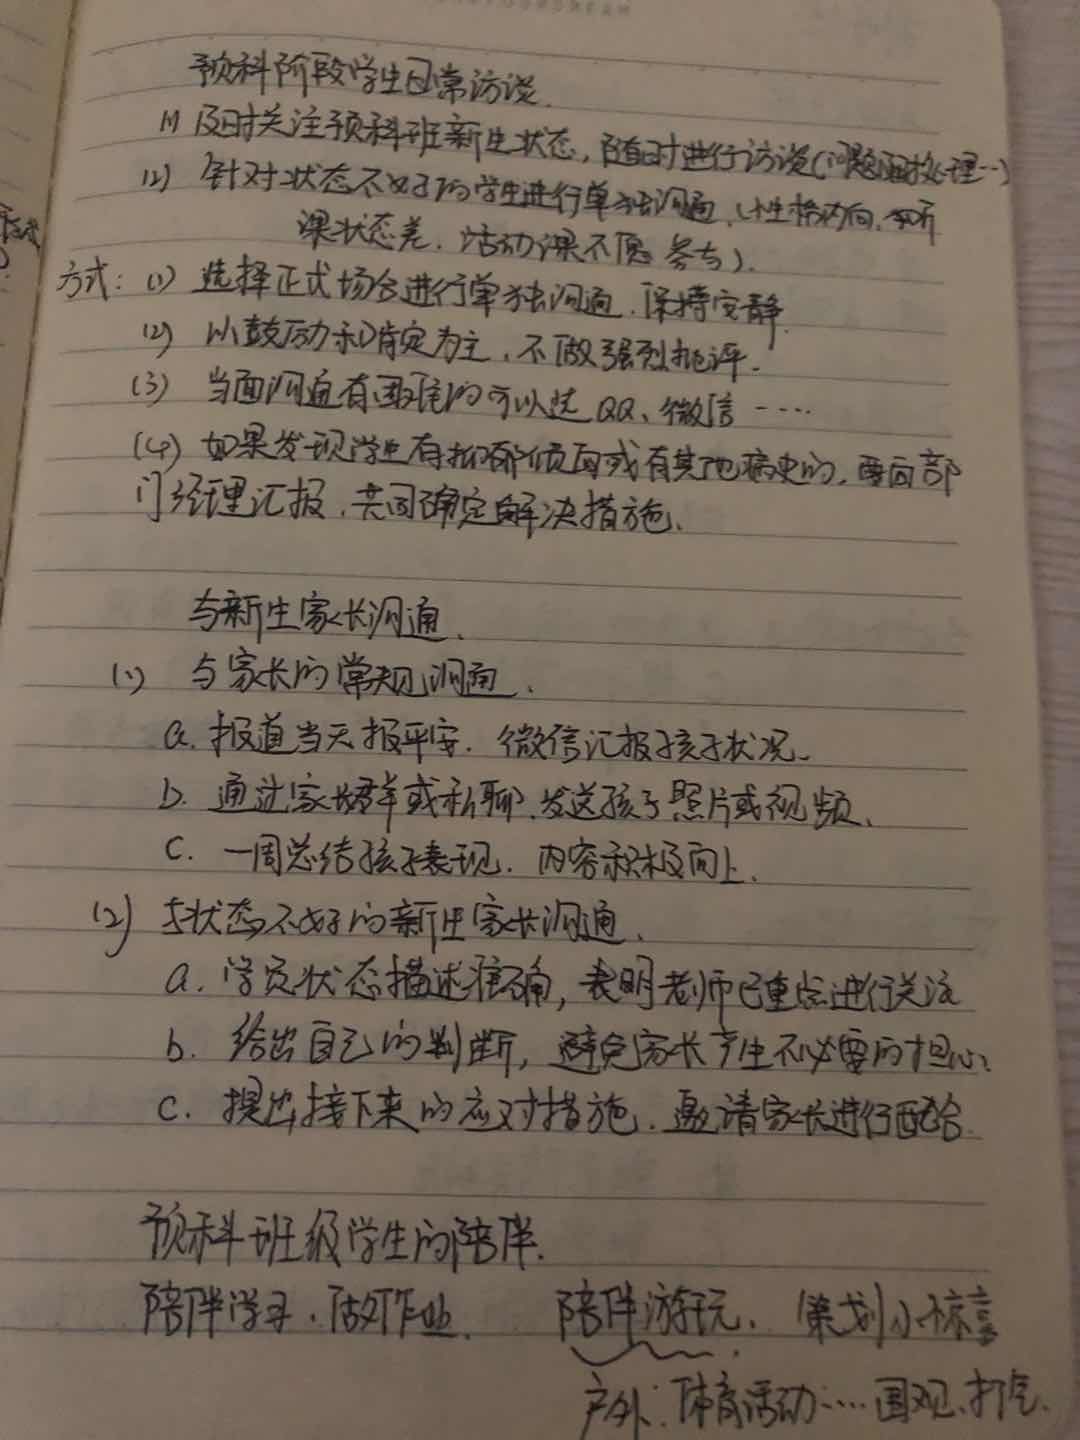 预科阶段学生日常访谈.
(1) 及时关注预科班新生状态, 随时进行访谈(问题随时处理…)
(2) 针对状态不好的学生进行单独沟通, (性格内向, 听
课状态差, 活动课不愿参与).
方式: (1) 选择正式场合进行单独沟通, 保持安静.
(2) 以鼓励和肯定为主, 不做强烈批评.
(3) 当面沟通有困难的可以选QQ、微信……
(4) 如果发现学生有抑郁倾向或有其他病史的, 要向部
门经理汇报, 共同确定解决措施.
与新生家长沟通.
(1) 与家长的常规沟通.
a. 报道当天报平安. 微信汇报孩子状况.
b. 通过家长群或私聊, 发送孩子照片或视频.
c. 一周总结孩子表现, 内容积极向上.
(2) 与状态不好的新生家长沟通.
a. 学员状态描述准确, 表明老师已重点进行关注
b. 给出自己的判断, 避免家长产生不必要的担心.
c. 提出接下来的应对措施, 邀请家长进行配合.
预科班级学生的陪伴.
陪伴学习, 做作业. 陪伴游玩, 策划小惊喜
户外: 体育活动…… 围观、打气.